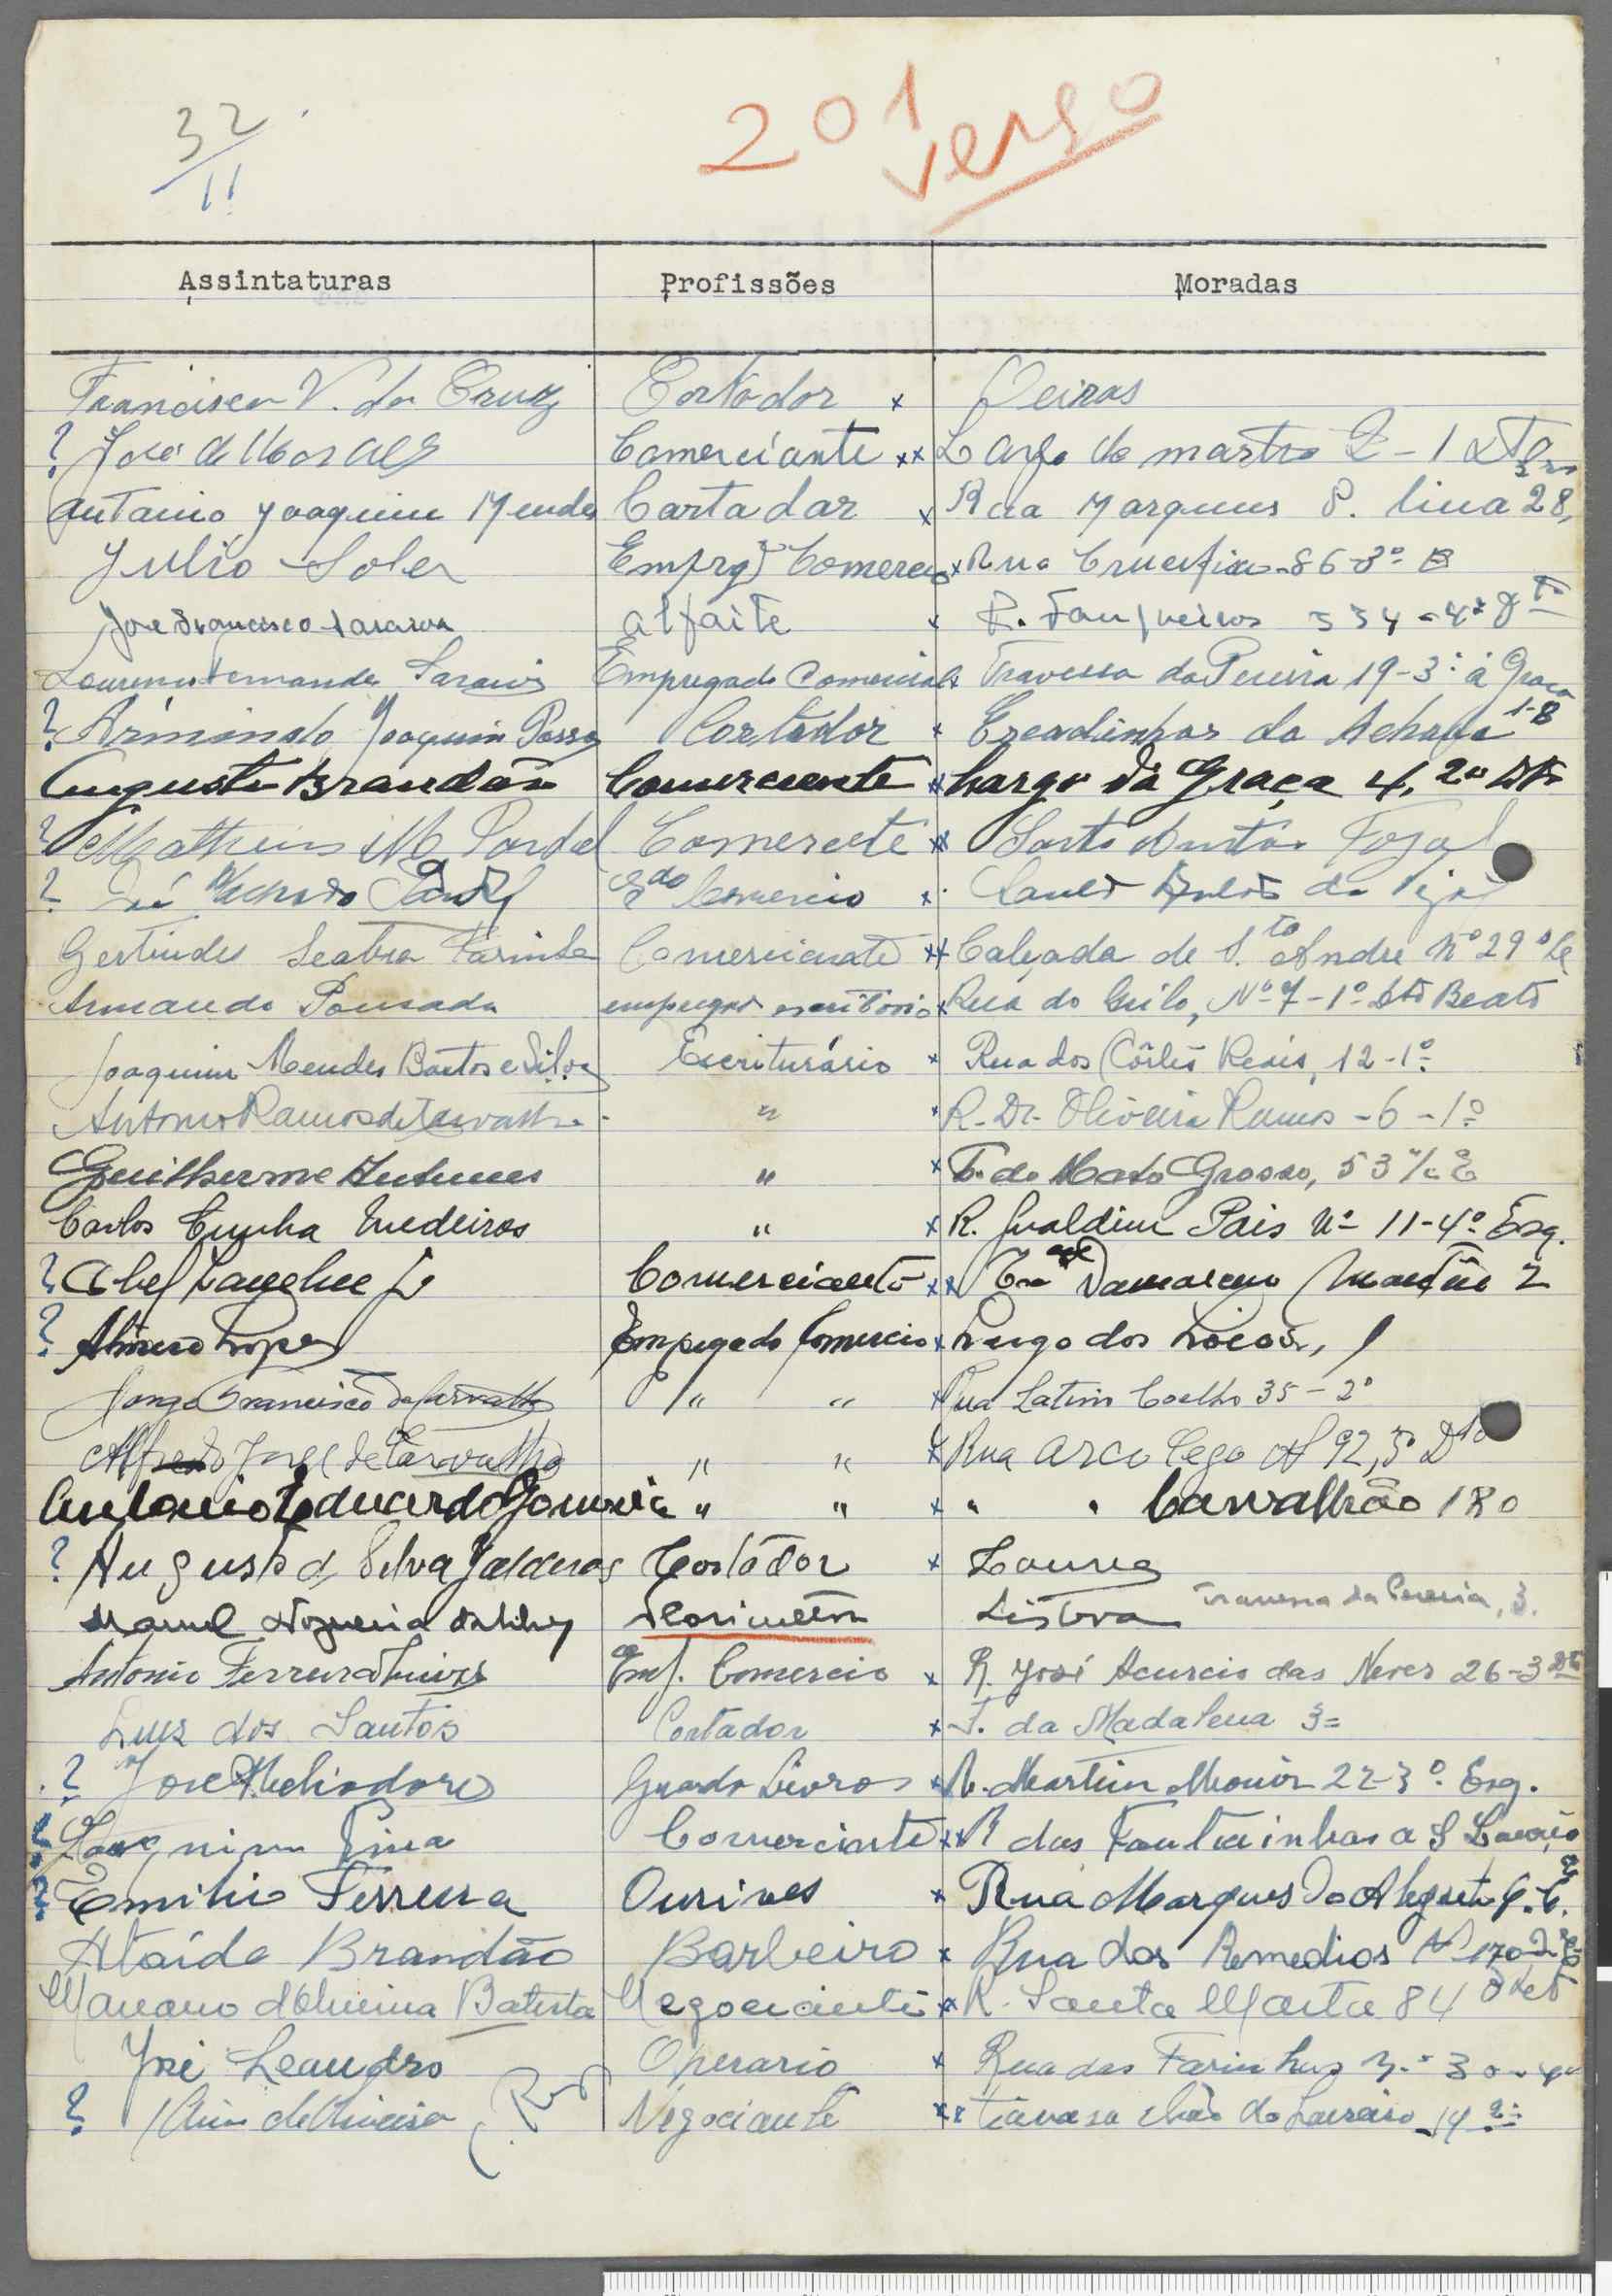 32
11
201
verso
Assintaturas Profissões Moradas
Francisco V. da Cruz Cortador x Oeiras
? José de Moraes Comerciante xx Largo do mastro 2 - 1 Dto
Antonio Joaquim Mendes Cortador x Rua Marques P. Lima 28,
Julio Soler Emprg Comercio x Rua Crucifixo 86-3º
José Francisco Saraiva alfaite x R. Fanqueiros 334-4º Dto
Lourenço Fernandes Saraiva Empregado Comercial x Travessa da Pereira 19-3º á Graça
? Armindo Joaquim Cortador x Escadinhas da Achada 1-B
Augusto Brandão Comerciante xx Largo da Graça 4, 2º Dto
? Matheus M Comerciante xx Santo Antão Tojal
? Machado Comercio x Santo Antão do Tojal
Gertrudes Seabra Farinha Comerciante xx Calçada de S.to Andre Nº 29
Armando Pousada empregado escritório x Rua do Grilo, Nº 7-1º Dto Beato
Joaquim Mendes Bastos e Silva Escriturário x Rua dos Côrtes Reais, 12-1º
Antonio Ramos de Carvalho " x R. Dr. Oliveira Ramos - 6 - 1º
Guilherme Antunes " x T. do Mato Grosso, 53
Carlos Cunha Medeiros " x R. Gualdim Pais nº 11-4º Esq.
? Abel Comerciante xx Damasceno 2
? Lopes Empegado Comercio x Largo dos Loios, 1
Jorge Francisco de Carvalho " " x Rua Latino Coelho 35-2º
Alfredo Jorge de Carvalho " " x Rua Arco Cego Nº 92, 3º Dto
Antonio Eduardo Gouveia " " x " " Carvalhão 180
? Augusto d Silva Cortador x Loures
Manuel Nogueira Lisboa Travessa da Pereira, 3.
Antonio Ferreira Emp. Comercio x R. José Acurcio das Neves 26-3 Dto
Luis dos Santos Cortador x T. da Madalena 3
? José Heliodoro Guarda Livros x R. Martim Moniz 22-3º Esq.
? Joaquim Pina Comerciante xx R das Fontainhas a S Lourenço
? Emilio Ferreira Ourives x Rua Marques do Alegrete
Ataíde Brandão Barbeiro x Rua dos Remedios Nº 170-2º
Mariano d'Oliveira Batista Negociante xx R. Santa Marta 84
José Leandro Operario x Rua das Farinhas nº 30
? de Oliveira Negociante xx Travessa Chão do Loureiro 14